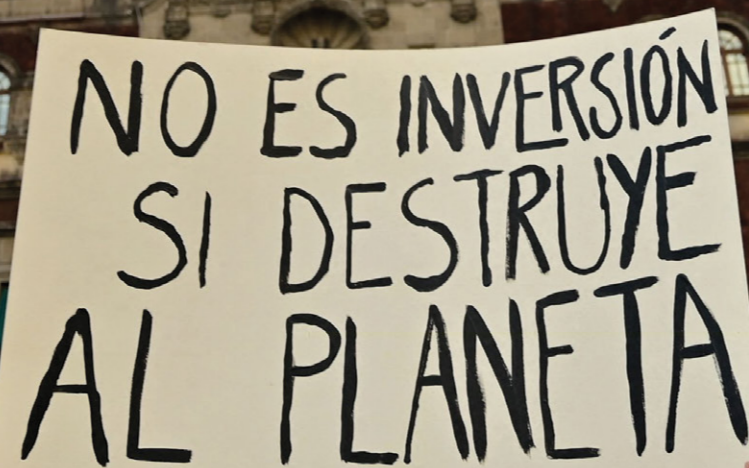 NO ES INVERSIÓN
SI DESTRUYE
AL PLANETA